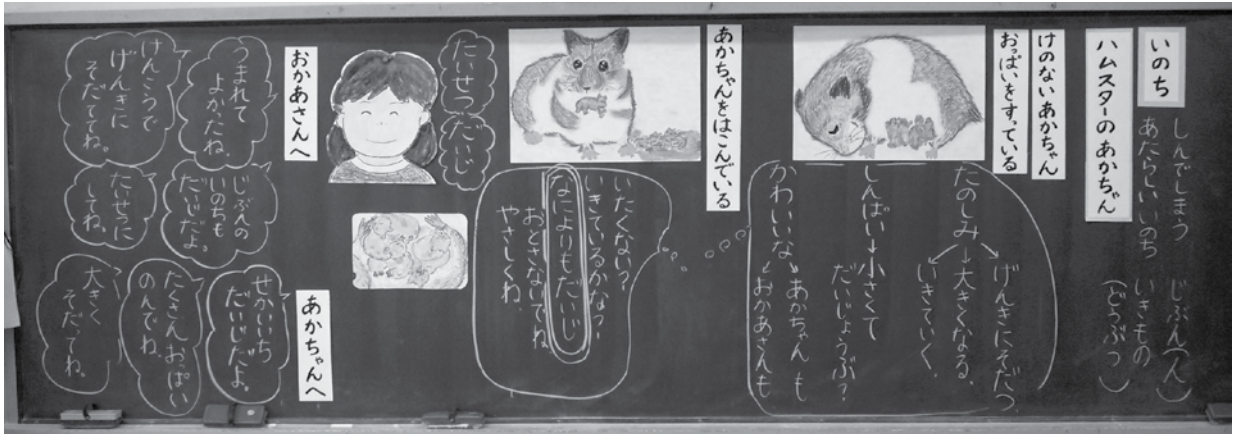 いのち
しんでしまう
あたらしいいのち
じぶん(人)
いきもの
(どうぶつ)
ハムスターのあかちゃん
けのないあかちゃん
おっぱいをすっている
たのしみ→げんきにそだつ
→大きくなる、
いきていく、
しんぱい→小さくて
だいじょうぶ?
かわいいな→あかちゃんも
おかあさんも
あかちゃんをはこんでいる
いたくない?
いきているかな?
なによりもだいじ
おとさないでね
やさしくね
たいせつ
だいじ
おかあさんへ
うまれて
よかったね、
けんこうで
げんきに
そだててね。
じぶんの
いのちも
だいじだよ。
たいせつに
してね。
あかちゃんへ
せかいいち
だいじだよ。
たくさんおっぱい
のんでね。
大きく
そだってね。